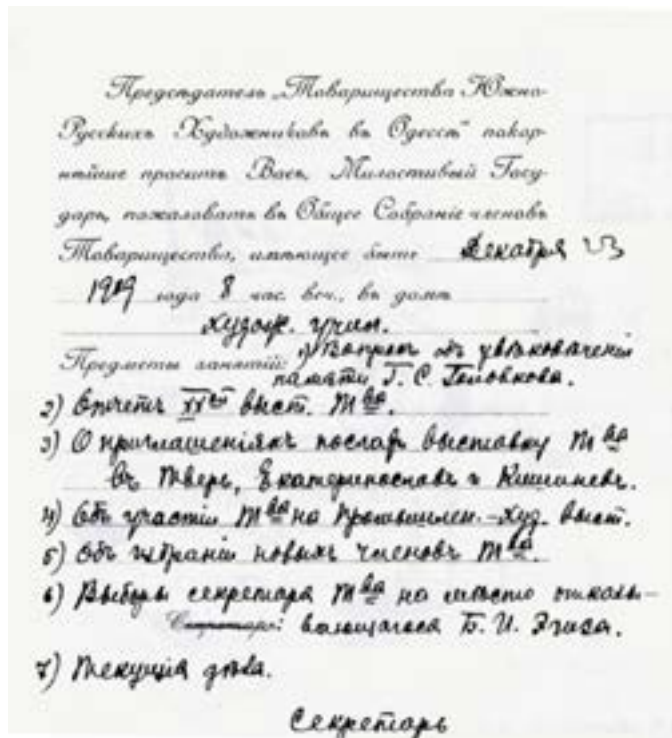 Предсѣдатель „Товарищества Южно-
Русскихъ Художниковъ въ Одессѣ“ покор-
нѣйше проситъ Васъ, Милостивый Госу-
дарь, пожаловать въ Общее Собраніе членовъ
Товарищества, имѣющее быть Декабря 23
1909 года 8 час. веч., въ домѣ
Худож. учил.
Предметы занятій: 1) Вопросъ объ увѣковѣченіи
памяти Г. С. Головкова.
2) Отчетъ XXой выст. Тва.
3) О приглашеніяхъ послать выставку Тва
въ Тверь, Екатеринославъ и Кишиневъ.
4) Объ участіи Тва на Промышлен.-Худ. выст.
5) Объ избраніи новыхъ членовъ Тва.
6) Выборы секретаря Тва на мѣсто отказы-
Секретарь: вающагося Б. И. Эгиза.
7) Текущія дѣла.
Секретарь